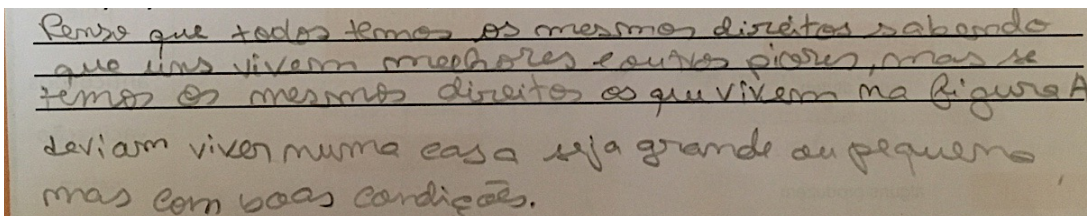 Penso que todos temos os mesmos direitos sabendo
que uns vivem melhores e outros piores, mas se
temos os mesmos direitos os que vivem na figura A
deviam viver numa casa seja grande ou pequena
mas com boas condições.